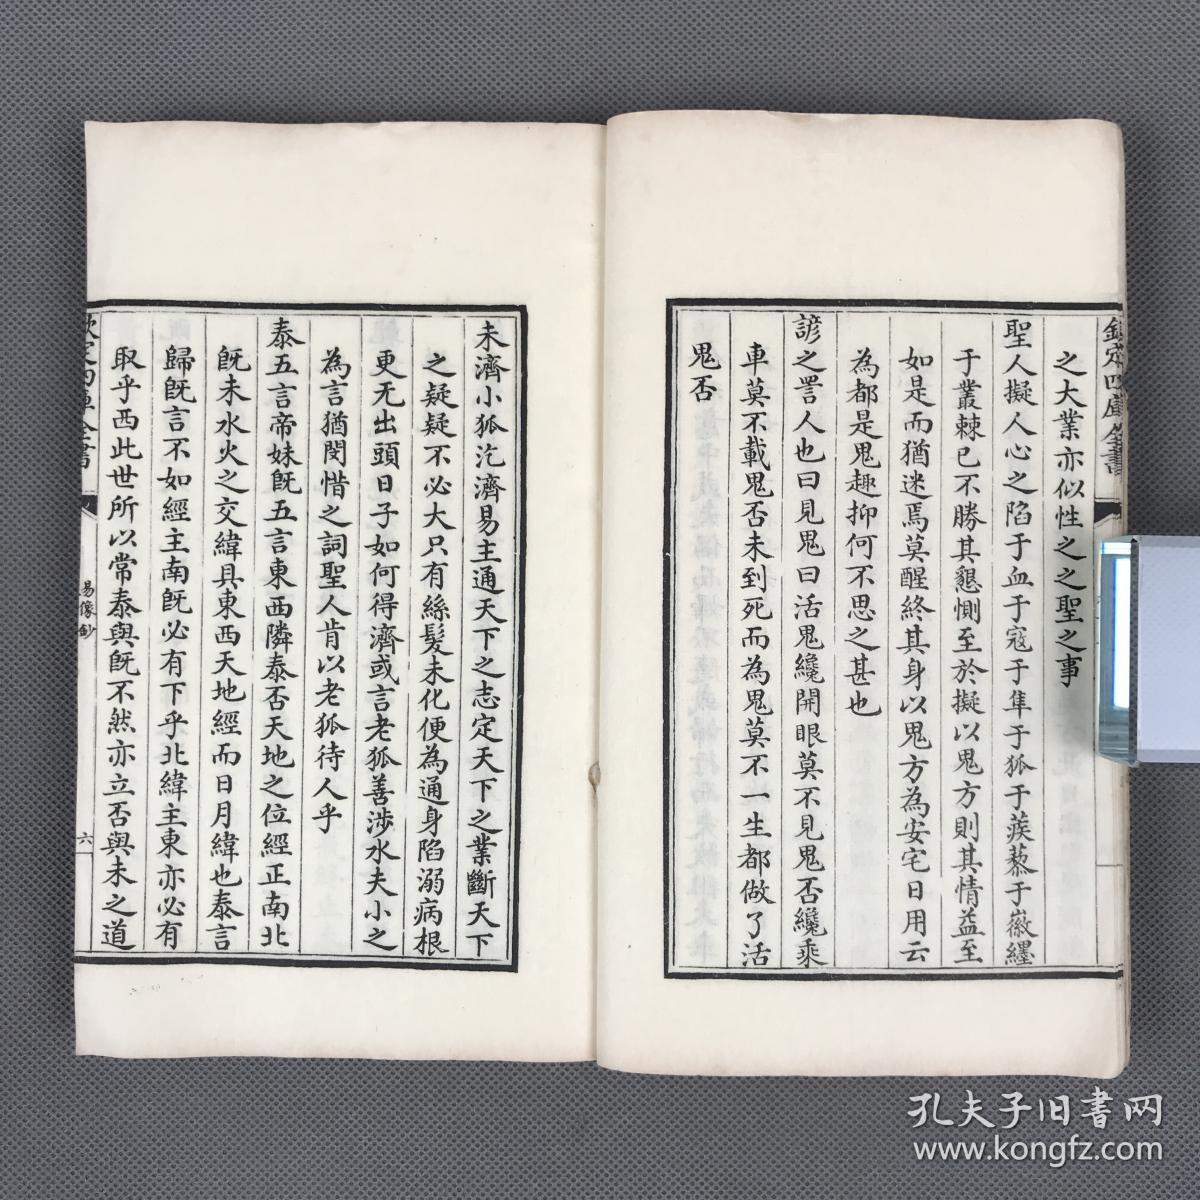 欽定四庫全書
之大業亦似性之之聖之事
聖人擬人心之陷于血于寇于隼于狐于蒺藜于徽纆
于叢棘已不勝其懇惻至於擬以鬼方則其情益至
如是而猶迷焉莫醒終其身以鬼方為安宅日用云
為都是鬼趣抑何不思之甚也
諺之詈人也曰見鬼曰活鬼纔開眼莫不見鬼否纔乘
車莫不載鬼否未到死而為鬼莫不一生都做了活
鬼否
未濟小狐汔濟易主通天下之志定天下之業斷天下
之疑疑不必大只有絲髮未化便為通身陷溺病根
更无出頭日子如何得濟或言老狐善涉水夫小之
為言猶閔惜之詞聖人肯以老狐待人乎
泰五言帝妹既五言東西隣泰否天地之位經正南北
既未水火之交緯具東西天地經而日月緯也泰言
歸既言不如經主南既必有下乎北緯主東亦必有
取乎西此世所以常泰與既不然亦立否與未之道
欽定四庫全書
易像鈔
六
孔夫子旧书网
www.kongfz.com